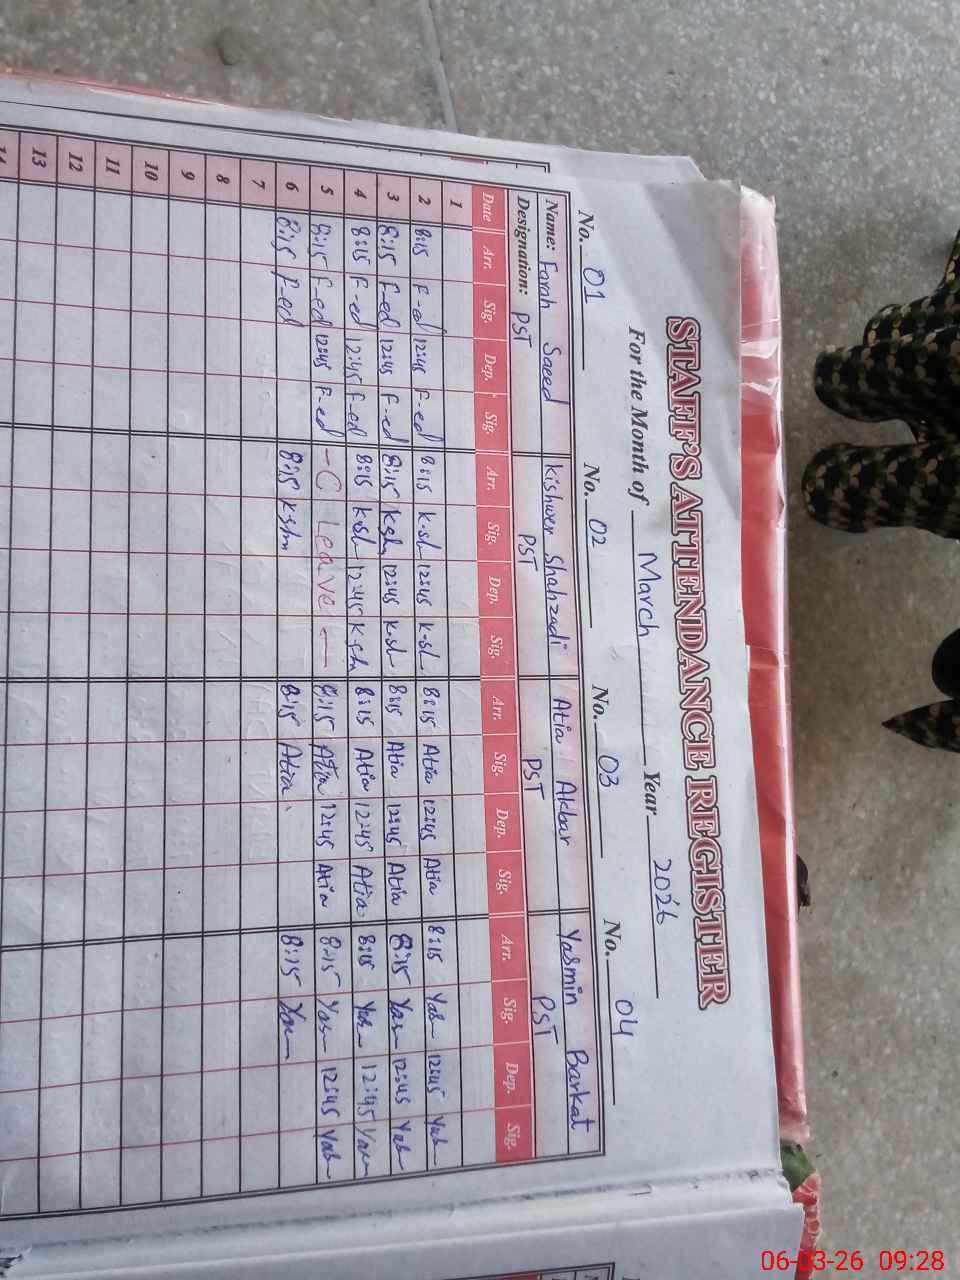 STAFF'S ATTENDANCE REGISTER
For the Month of March Year 2026
No. 01 No. 02 No. 03 No. 04
Name: Farah Saeed Kishwer Shahzadi Atia Akbar Yasmin Barkat
Designation: PST PST PST PST
Date Arr. Sig. Dep. Sig. Arr. Sig. Dep. Sig. Arr. Sig. Dep. Sig. Arr. Sig. Dep. Sig.
1
2 8:15 F-ed 12:45 F-ed 8:15 K-sh 12:45 K-sh 8:15 Atia 12:45 Atia 8:15 Yas 12:45 Yas
3 8:15 F-ed 12:45 F-ed 8:15 K-sh 12:45 K-sh 8:15 Atia 12:45 Atia 8:15 Yas 12:45 Yas
4 8:15 F-ed 12:45 F-ed 8:15 K-sh 12:45 K-sh 8:15 Atia 12:45 Atia 8:15 Yas 12:45 Yas
5 8:15 F-ed 12:45 F-ed - C Leave - 8:15 Atia 12:45 Atia 8:15 Yas 12:45 Yas
6 8:15 F-ed 8:15 K-sh 8:15 Atia 8:15 Yas
7
8
9
10
11
12
13
14
06-03-26 09:28